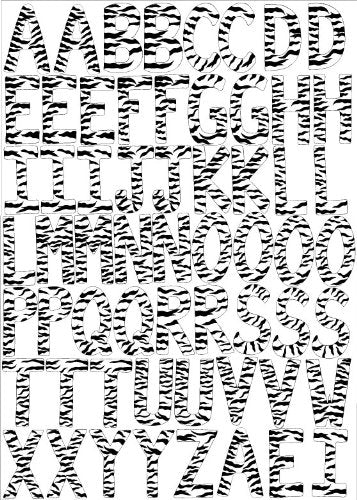 AABBCCDD
EEEFFGGHH
IIIJJKKLL
LMMNNOOOO
PPQQRRSSS
TTTUUVVW
XXYYZAEI